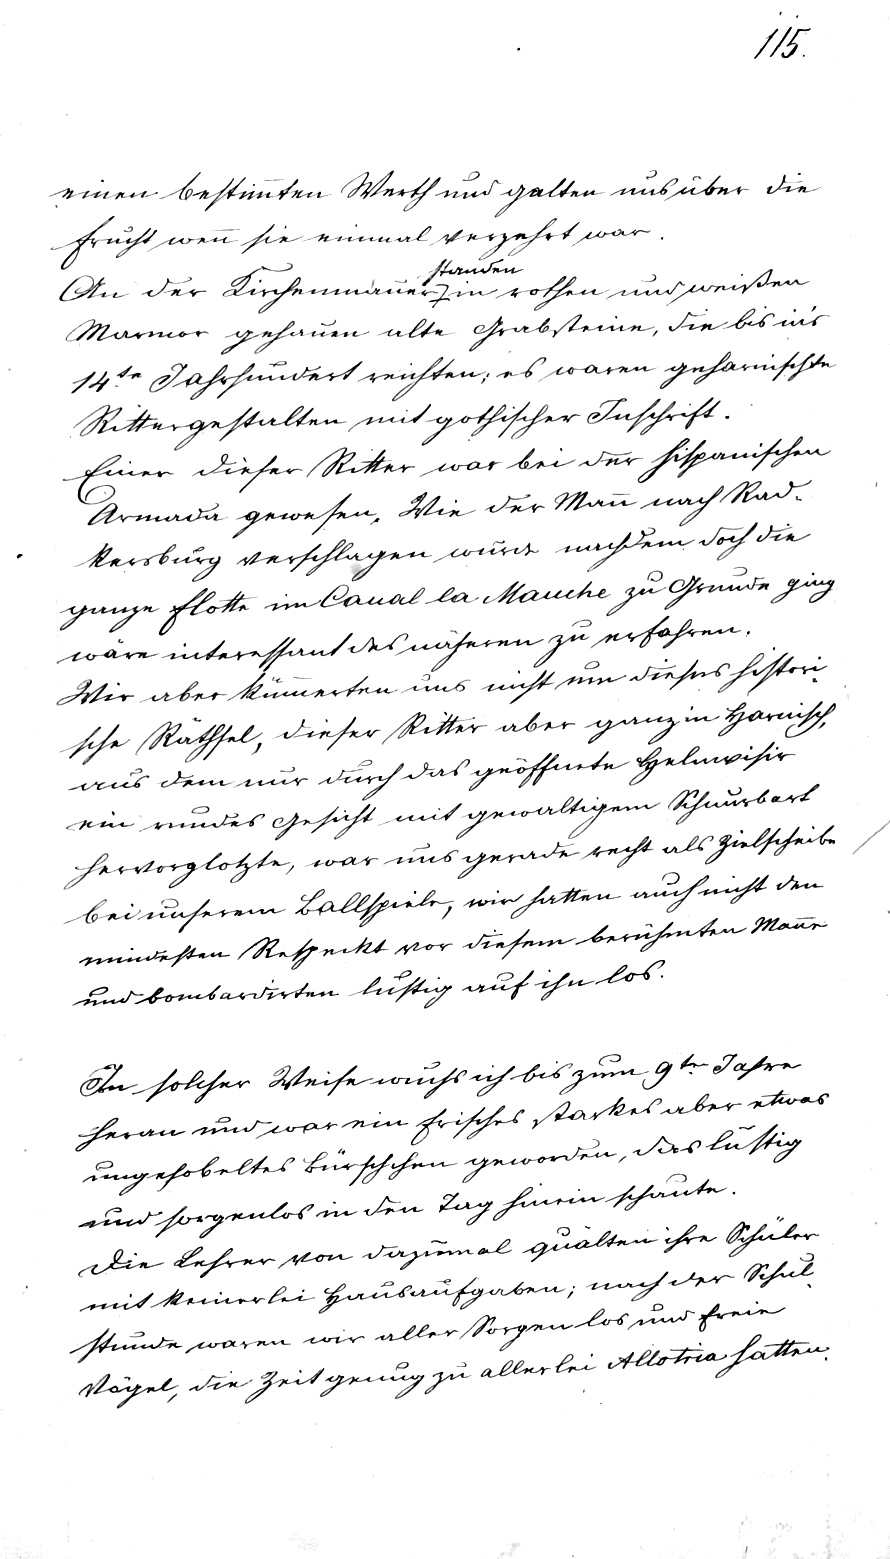 115.
einen bestim̅ten Werth und galten uns über die
Frucht wen̅ sie einmal verzehrt war.
standen
An der Kirchenmauer in rothen und weißen
Marmor gehauen alte Grabsteine, die bis in's
14te Jahrhundert reichten; es waren geharnischte
Rittergestalten mit gothischer Inschrift.
Einer dieser Ritter war bei der hispanischen
Armada gewesen. Wie der Man̅ nach Rad-
kersburg verschlagen wurde nachdem doch die
ganze Flotte im Canal la Manche zu Grunde ging
wäre interessant des näheren zu erfahren.
Wir aber küm̅erten uns nicht um dieses histori-
sche Räthsel, dieser Ritter aber ganz in Harnisch,
aus dem nur durch das geöffnete Helmvisir
ein rundes Gesicht mit gewaltigem Schnurbart
hervorglotzte, war uns gerade recht als Zielscheibe
bei unserem Ballspiele, wir hatten auch nicht den
mindesten Respeckt vor diesem berühmten Man̅e
und bombardirten lustig auf ihn los.
In solcher Weise wuchs ich bis zum 9ten Jahre
heran und war ein frisches starkes aber etwas
ungehobeltes Bürschchen geworden, das lustig
und sorgenlos in den Tag hinein schaute.
Die Lehrer von dazumal quälten ihre Schüler
mit keinerlei Hausaufgaben; nach der Schul-
stunde waren wir aller Sorgen los und freie
Vögel, die Zeit genug zu allerlei Allotria hatten.